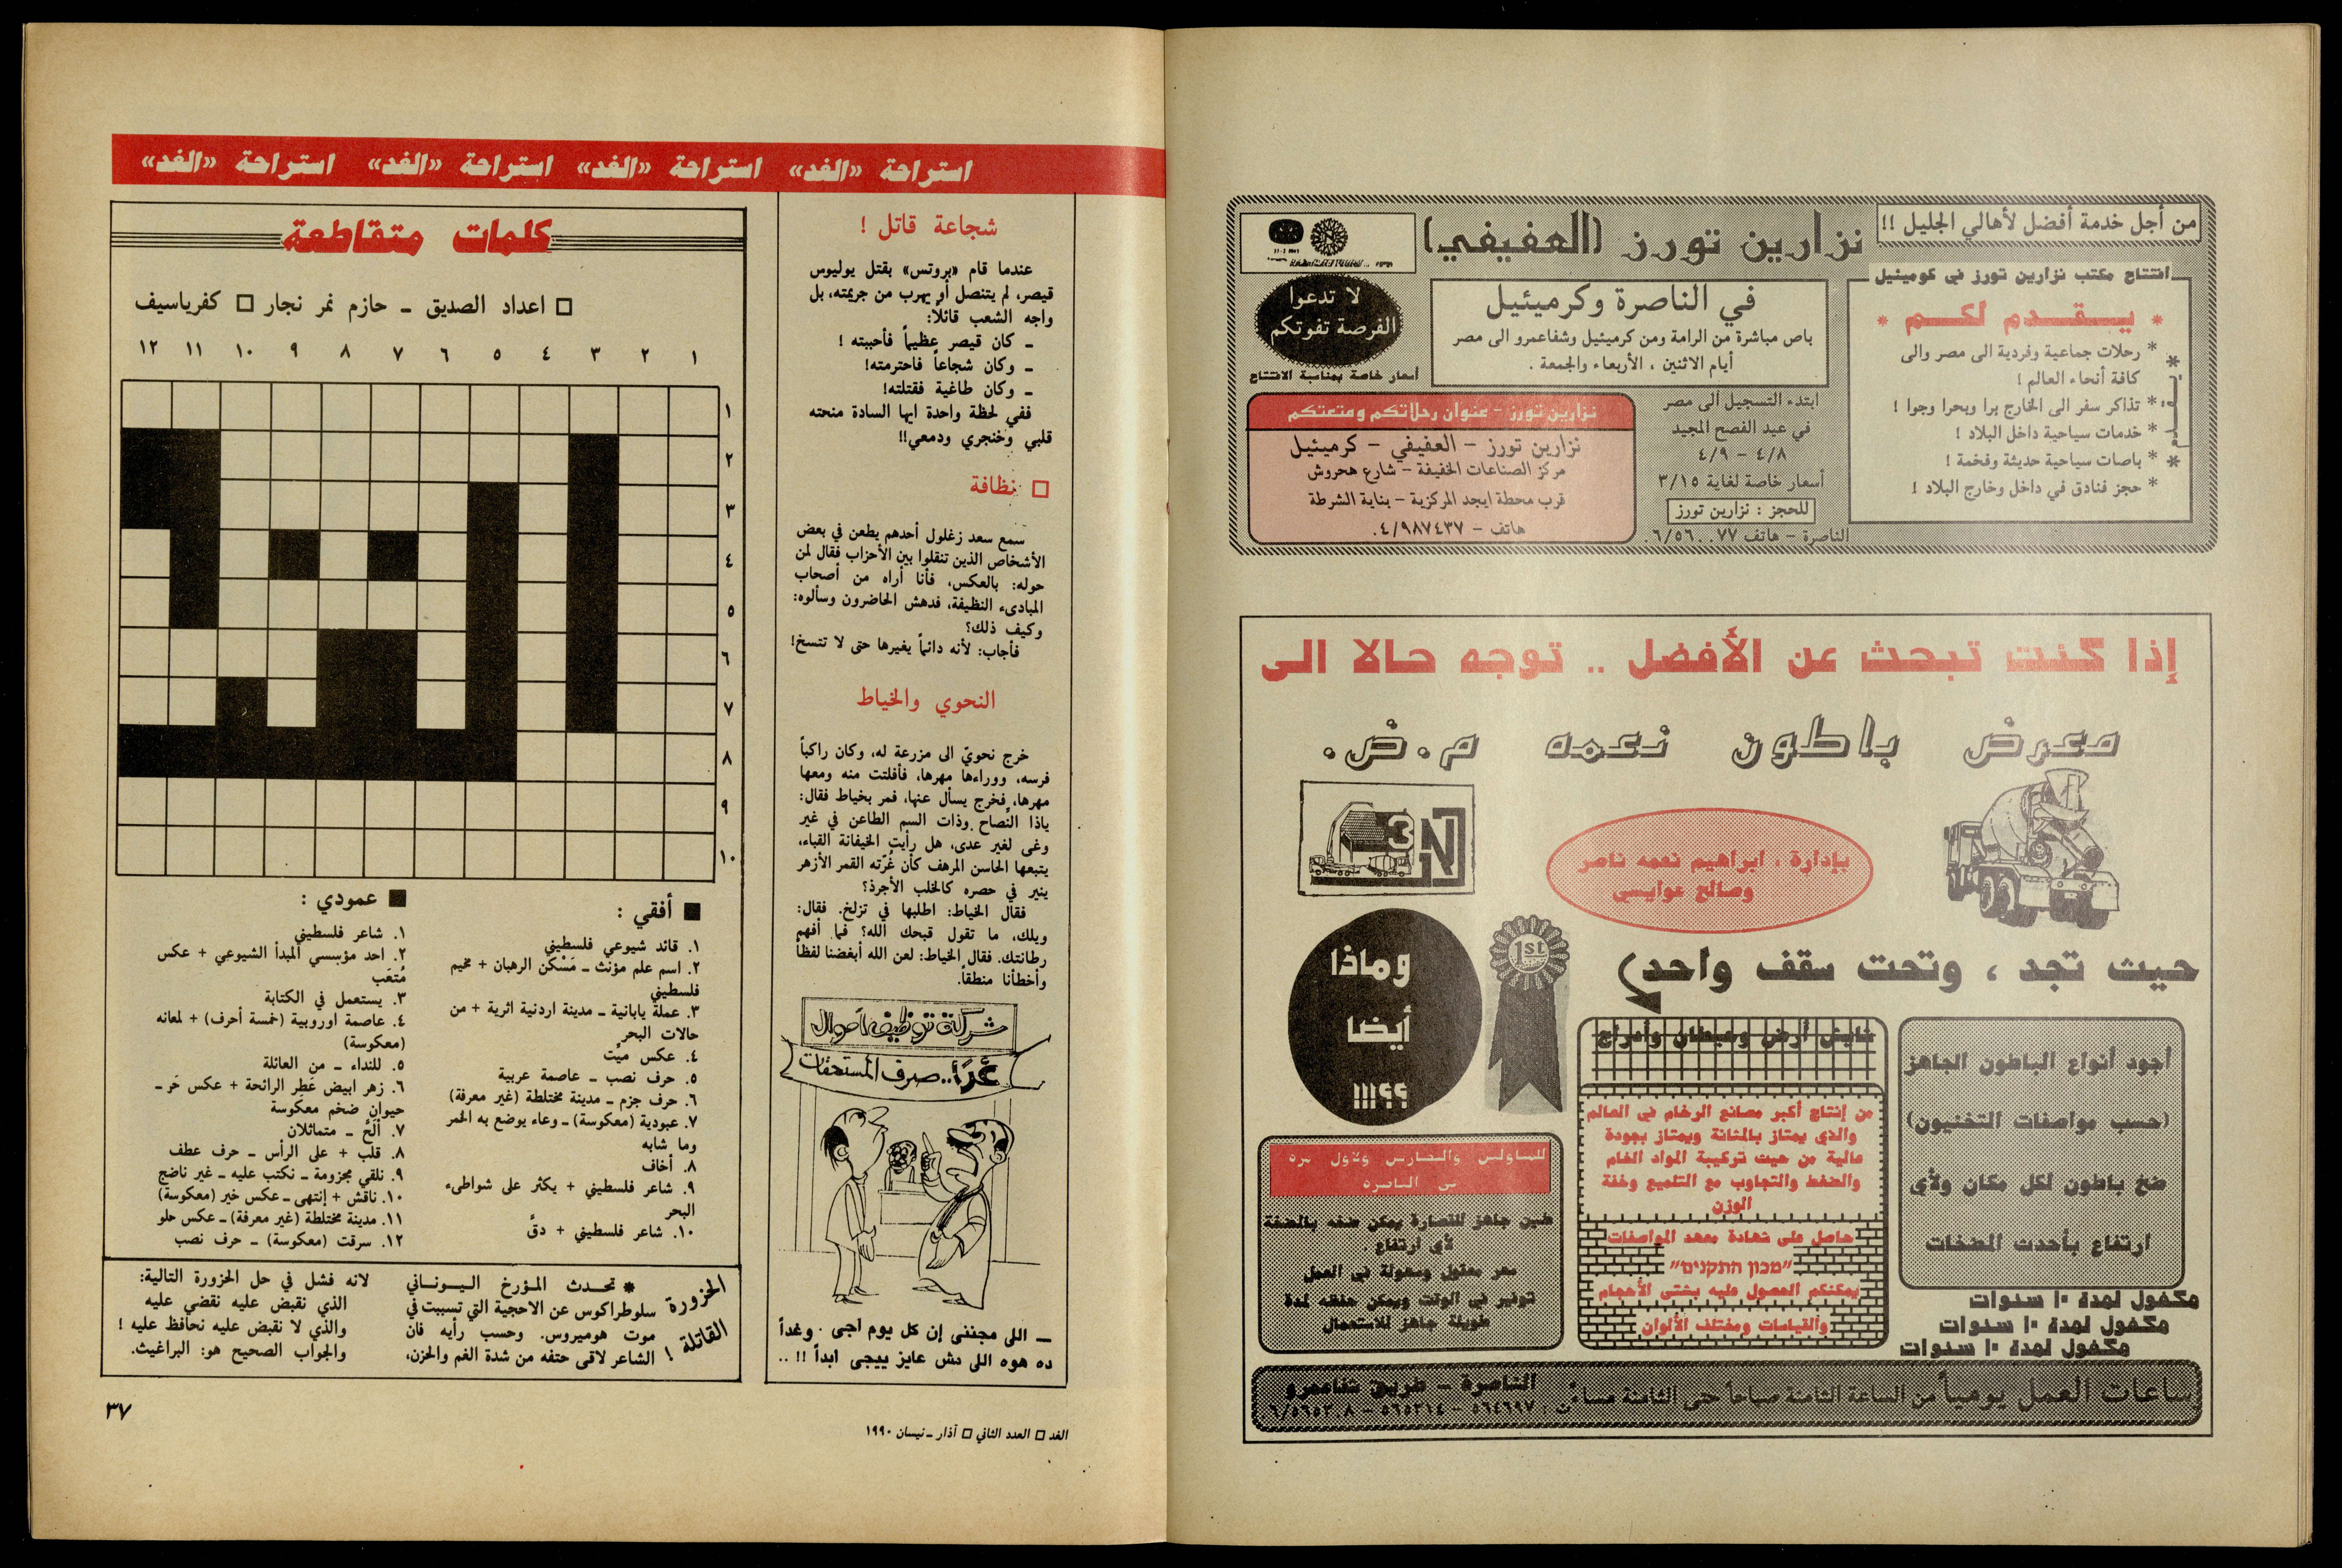 من أجل خدمة أفضل لأهالي الجليل !!
نزارين تورز (العفيفي)
افتتاح مكتب نزارين تورز في كرميئيل
* يـقـدم لكـم *
* رحلات جماعية وفردية الى مصر والى
كافة أنحاء العالم !
* تذاكر سفر الى الخارج برا وبحرا وجوا !
* خدمات سياحية داخل البلاد !
* باصات سياحية حديثة وفخمة !
* حجز فنادق في داخل وخارج البلاد !
في الناصرة وكرميئيل
باص مباشرة من الرامة ومن كرميئيل وشفاعمرو الى مصر
أيام الاثنين ، الأربعاء والجمعة .
لا تدعوا
الفرصة تفوتكم
أسعار خاصة بمناسبة الافتتاح
ابتدء التسجيل الى مصر
في عيد الفصح المجيد
٤/٨ - ٤/٩
أسعار خاصة لغاية ٣/١٥
للحجز : نزارين تورز
الناصرة - هاتف ٧٧..٦/٥٦.
نزارين تورز - عنوان رحلاتكم ومتعتكم
نزارين تورز - العفيفي - كرميئيل
مركز الصناعات الخفيفة - شارع هحروش
قرب محطة ايجد المركزية - بناية الشرطة
هاتف - ٤/٩٨٧٤٣٧.
إذا كنت تبحث عن الأفضل .. توجه حالا الى
معرض باطون نعمه م.ض.
3N
بإدارة ، ابراهيم نعمه ناصر
وصالح عوايسي
حيث تجد ، وتحت سقف واحد
1st
وماذا
أيضا
؟؟!!!
أجود أنواع الباطون الجاهز
(حسب مواصفات التخنيون)
ضخ باطون لكل مكان ولأي
ارتفاع بأحدث المضخات
مكفول لمدة ١٠ سنوات
مكفول لمدة ١٠ سنوات
مكفول لمدة ١٠ سنوات
من إنتاج أكبر مصانع الرخام في العالم
والذي يمتاز بالمتانة ويمتاز بجودة
عالية من حيث تركيبة المواد الخام
والضغط والتجاوب مع التلميع وخفة
الوزن
حاصل على شهادة معهد المواصفات
"מכון התקנים"
يمكنكم الحصول عليه بشتى الأحجام
والقياسات ومختلف الألوان
طين جاهز للقصارة يمكن ضخه بالمضخة
لأي ارتفاع .
سعر معقول وسهولة في العمل
توفير في الوقت ويمكن حفظه لمدة
طويلة جاهز للاستعمال
ساعات العمل يومياً من الساعة الثامنة صباحاً حتى الثامنة مساءً
الناصرة - طريق شفاعمرو
ت : ٥٦٤٦٩٧ - ٥٦٥٢١٤ - ٦/٥٦٥٢.٨.
استراحة «الغد» استراحة «الغد» استراحة «الغد» استراحة «الغد»
شجاعة قاتل !
عندما قام «بروتس» بقتل يوليوس
قيصر، لم يتنصل أو يهرب من جريمته، بل
واجه الشعب قائلاً:
ـ كان قيصر عظيماً فأحببته !
ـ وكان شجاعاً فاحترمته!
ـ وكان طاغية فقتلته!
ففي لحظة واحدة ايها السادة منحته
قلبي وخنجري ودمعي!!
□ نظافة
سمع سعد زغلول أحدهم يطعن في بعض
الأشخاص الذين تنقلوا بين الأحزاب فقال لمن
حوله: بالعكس، فأنا أراه من أصحاب
المبادىء النظيفة، فدهش الحاضرون وسألوه:
وكيف ذلك؟
فأجاب: لأنه دائماً يغيرها حتى لا تتسخ!
النحوي والخياط
خرج نحويّ الى مزرعة له، وكان راكباً
فرسه، ووراءها مهرها، فأفلتت منه ومعها
مهرها، فخرج يسأل عنها، فمر بخياط فقال:
ياذا النُصاح وذات السم الطاعن في غير
وغى لغير عدى، هل رأيت الخيفانة القباء،
يتبعها الحاسن المرهف كأن غُرّته القمر الأزهر
ينير في حصره كالخلب الأجرذ؟
فقال الخياط: اطلبها في تزلخ. فقال:
ويلك، ما تقول قبحك الله؟ فما أفهم
رطانتك. فقال الخياط: لعن الله أبغضنا لفظاً
وأخطأنا منطقاً.
شركة توظيف أموال
غداً.. صرف المستحقات
ـ اللى مجننى إن كل يوم اجى . وغداً
ده هوه اللى مش عايز ييجى ابداً !! ..
كلمات متقاطعة
□ اعداد الصديق ـ حازم نمر نجار □ كفرياسيف
١ ٢ ٣ ٤ ٥ ٦ ٧ ٨ ٩ ١٠ ١١ ١٢
١
٢
٣
٤
٥
٦
٧
٨
٩
١٠
■ أفقي :
١. قائد شيوعي فلسطيني
٢. اسم علم مؤنث ـ مَسْكَن الرهبان + مخيم
فلسطيني
٣. عملة يابانية ـ مدينة اردنية اثرية + من
حالات البحر
٤. عكس ميّت
٥. حرف نصب ـ عاصمة عربية
٦. حرف جزم ـ مدينة مختلطة (غير معرفة)
٧. عبودية (معكوسة) ـ وعاء يوضع به الخمر
وما شابه
٨. أخاف
٩. شاعر فلسطيني + يكثر على شواطىء
البحر
١٠. شاعر فلسطيني + دقّ
■ عمودي :
١. شاعر فلسطيني
٢. احد مؤسسي المبدأ الشيوعي + عكس
مُتعَب
٣. يستعمل في الكتابة
٤. عاصمة اوروبية (خمسة أحرف) + لمعانه
(معكوسة)
٥. للنداء ـ من العائلة
٦. زهر ابيض عَطِر الرائحة + عكس حَر ـ
حيوان ضخم معكوسة
٧. ألَحَّ ـ متماثلان
٨. قلب + على الرأس ـ حرف عطف
٩. نلقي مجزومة ـ نكتب عليه ـ غير ناضج
١٠. ناقش + إنتهى ـ عكس خير (معكوسة)
١١. مدينة مختلطة (غير معرفة) ـ عكس حلو
١٢. سرقت (معكوسة) ـ حرف نصب
الحزورة القاتلة !
* تحدث المؤرخ اليوناني
سلوطراكوس عن الاحجية التي تسببت في
موت هوميروس. وحسب رأيه فان
الشاعر لاقى حتفه من شدة الغم والحزن،
لانه فشل في حل الحزورة التالية:
الذي نقبض عليه نقضي عليه
والذي لا نقبض عليه نحافظ عليه !
والجواب الصحيح هو: البراغيث.
٣٧
الغد □ العدد الثاني □ آذار ـ نيسان ١٩٩٠